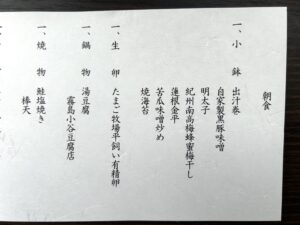 朝食
一、小鉢 出汁巻
自家製黒豚味噌
明太子
紀州南高梅蜂蜜梅干し
蓮根金平
苦瓜味噌炒め
焼海苔
一、生卵 たまご牧場平飼い有精卵
一、鍋物 湯豆腐
霧島小谷豆腐店
一、焼物 鮭塩焼き
棒天